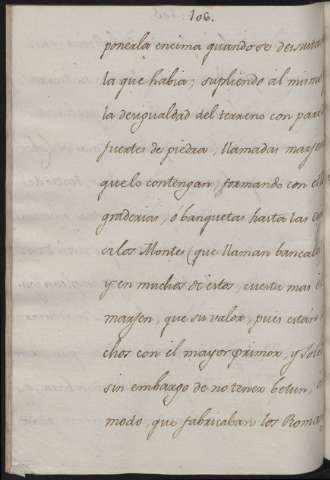 106.
ponerla encima quando se desustan
la que habia; supliendo al mismo
la desigualdad del terreno con pare
fuertes de piedra, llamadas marjen
que lo contengan, formando con el
graderias, ó banquetas hasta las
los Montes (que llaman bancale
y en muchos de estos, cuesta mas
marjen, que su valor, pues están
chos con el mayor primor, y sol
sin embargo de no tener betun,
modo, que fabricaban los Roma